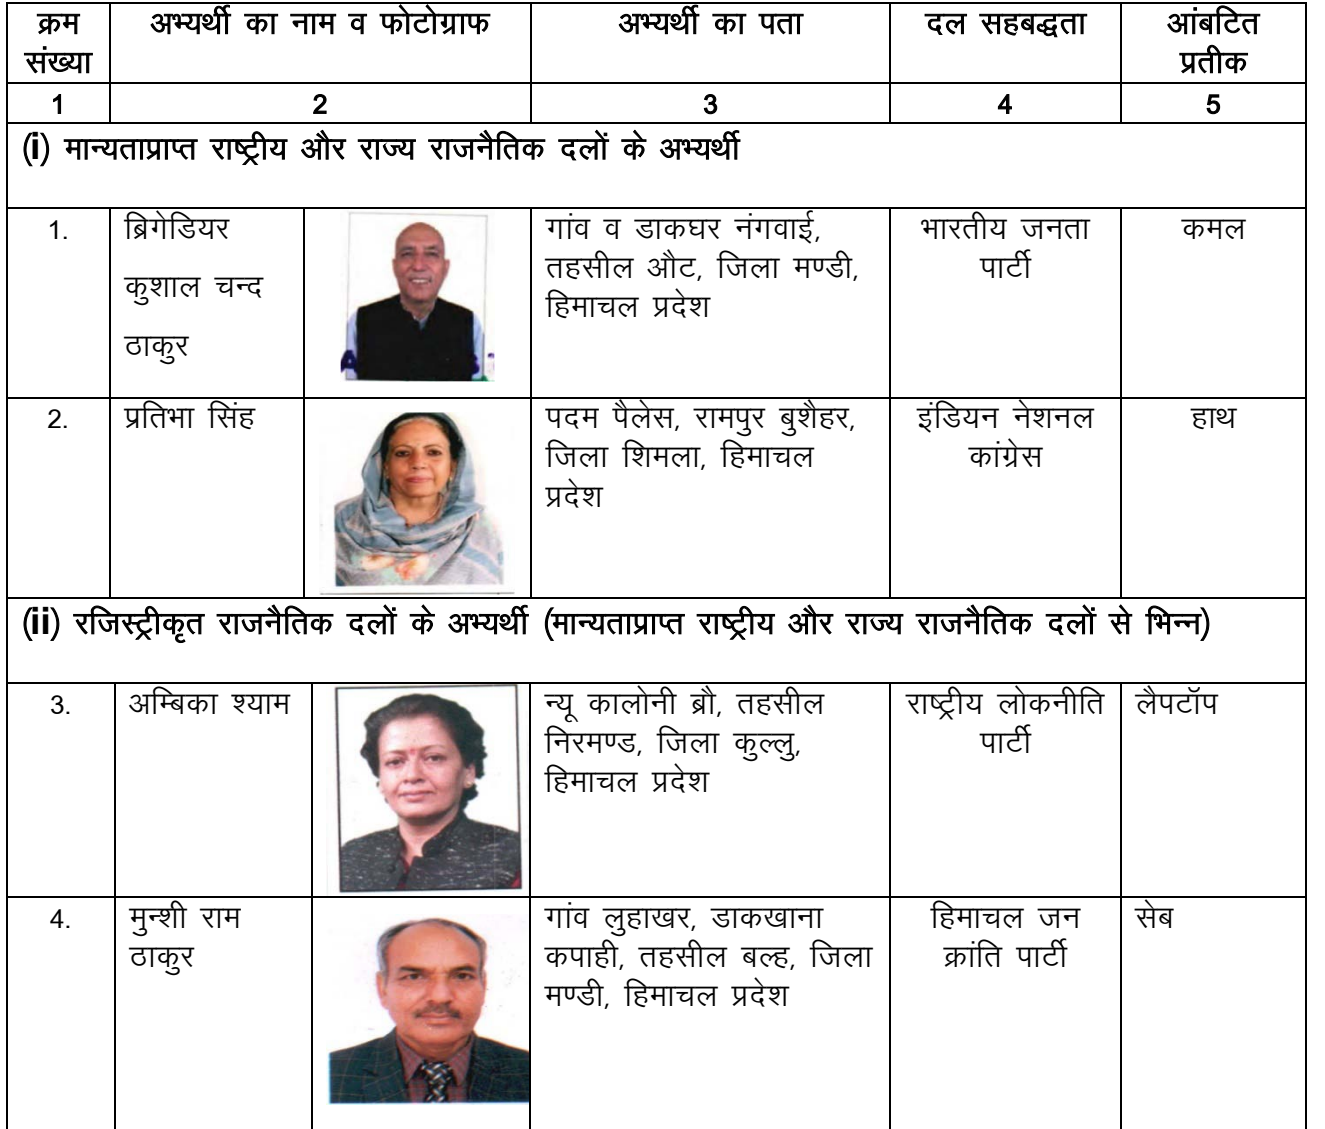 क्रम
संख्या
अभ्यर्थी का नाम व फोटोग्राफ
अभ्यर्थी का पता
दल सहबद्धता
आंबटित
प्रतीक
1
2
3
4
5
(i) मान्यताप्राप्त राष्ट्रीय और राज्य राजनैतिक दलों के अभ्यर्थी
1.
ब्रिगेडियर
कुशाल चन्द
ठाकुर
गांव व डाकघर नंगवाई,
तहसील औट, जिला मण्डी,
हिमाचल प्रदेश
भारतीय जनता
पार्टी
कमल
2.
प्रतिभा सिंह
पदम पैलेस, रामपुर बुशैहर,
जिला शिमला, हिमाचल
प्रदेश
इंडियन नेशनल
कांग्रेस
हाथ
(ii) रजिस्ट्रीकृत राजनैतिक दलों के अभ्यर्थी (मान्यताप्राप्त राष्ट्रीय और राज्य राजनैतिक दलों से भिन्न)
3.
अम्बिका श्याम
न्यू कालोनी ब्रौ, तहसील
निरमण्ड, जिला कुल्लु,
हिमाचल प्रदेश
राष्ट्रीय लोकनीति
पार्टी
लैपटॉप
4.
मुन्शी राम
ठाकुर
गांव लुहाखर, डाकखाना
कपाही, तहसील बल्ह, जिला
मण्डी, हिमाचल प्रदेश
हिमाचल जन
क्रांति पार्टी
सेब